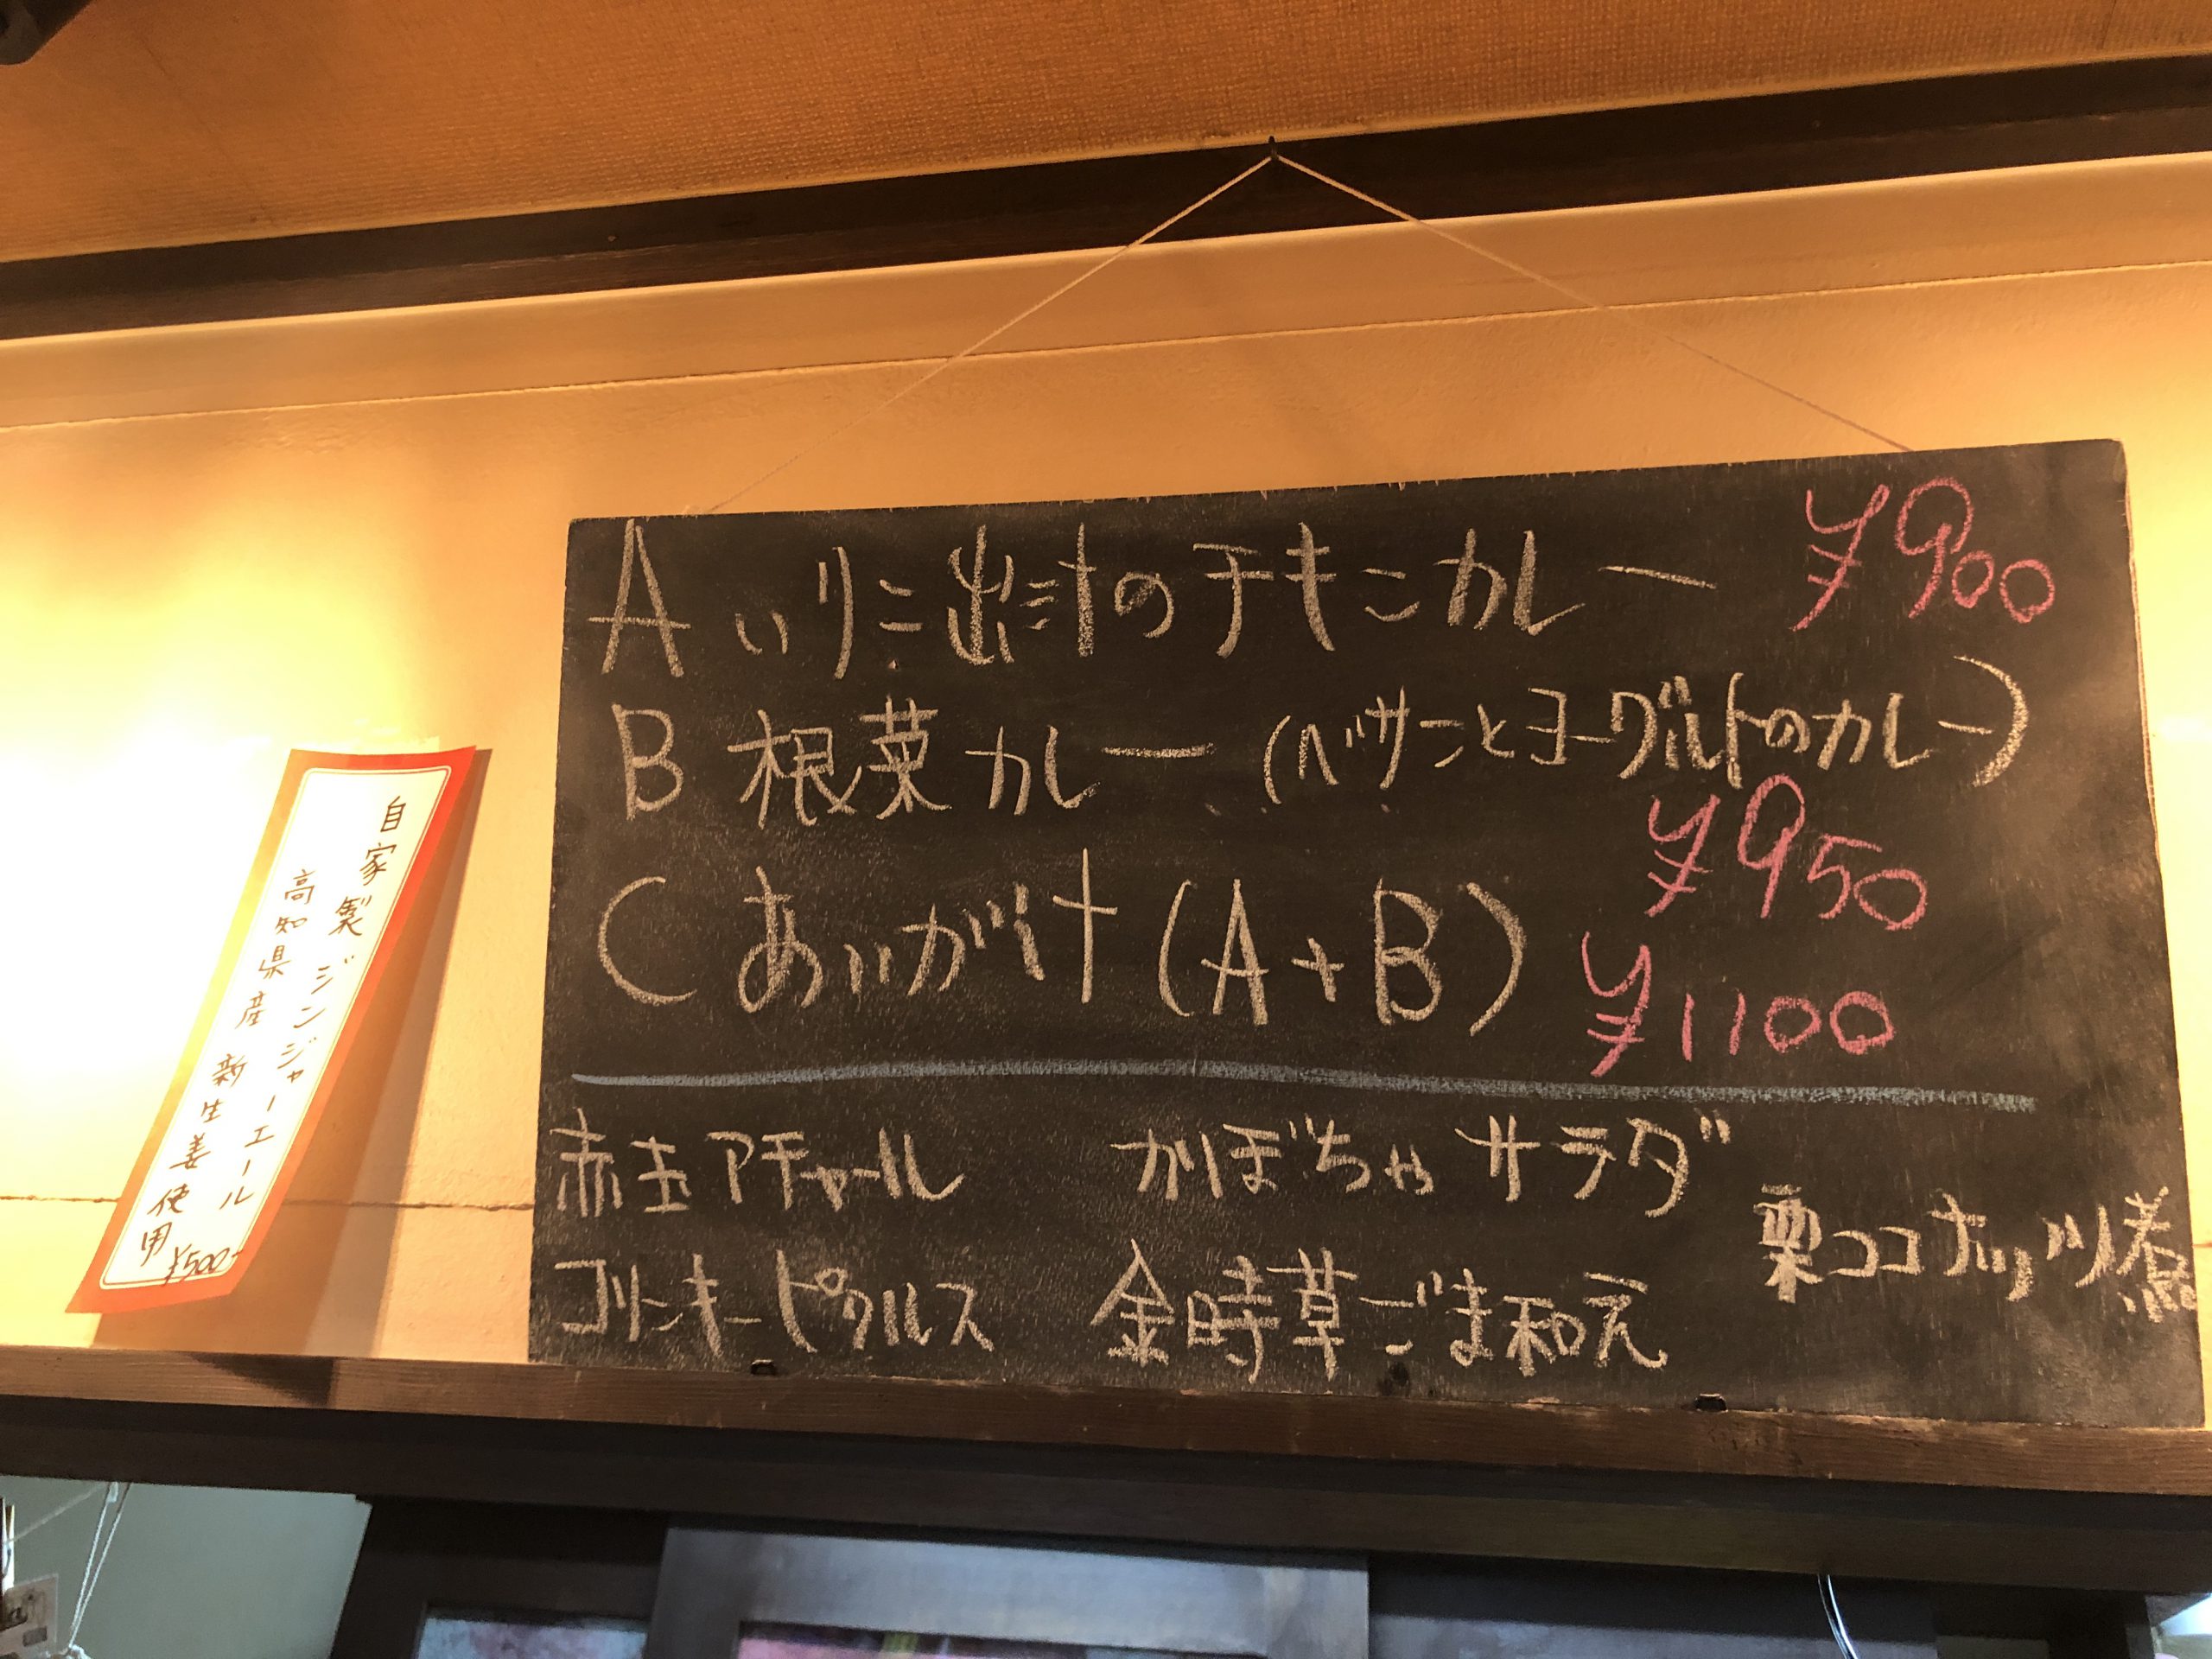 A いりこ出汁のチキンカレー ¥900
B 根菜カレー (ベサンとヨーグルトのカレー)
¥950
C あいがけ (A+B) ¥1100
赤玉アチャール かぼちゃサラダ
栗ココナッツ煮
コリンキーピクルス 金時草ごま和え
自家製 ジンジャーエール
高知県産 新生姜使用
¥500-